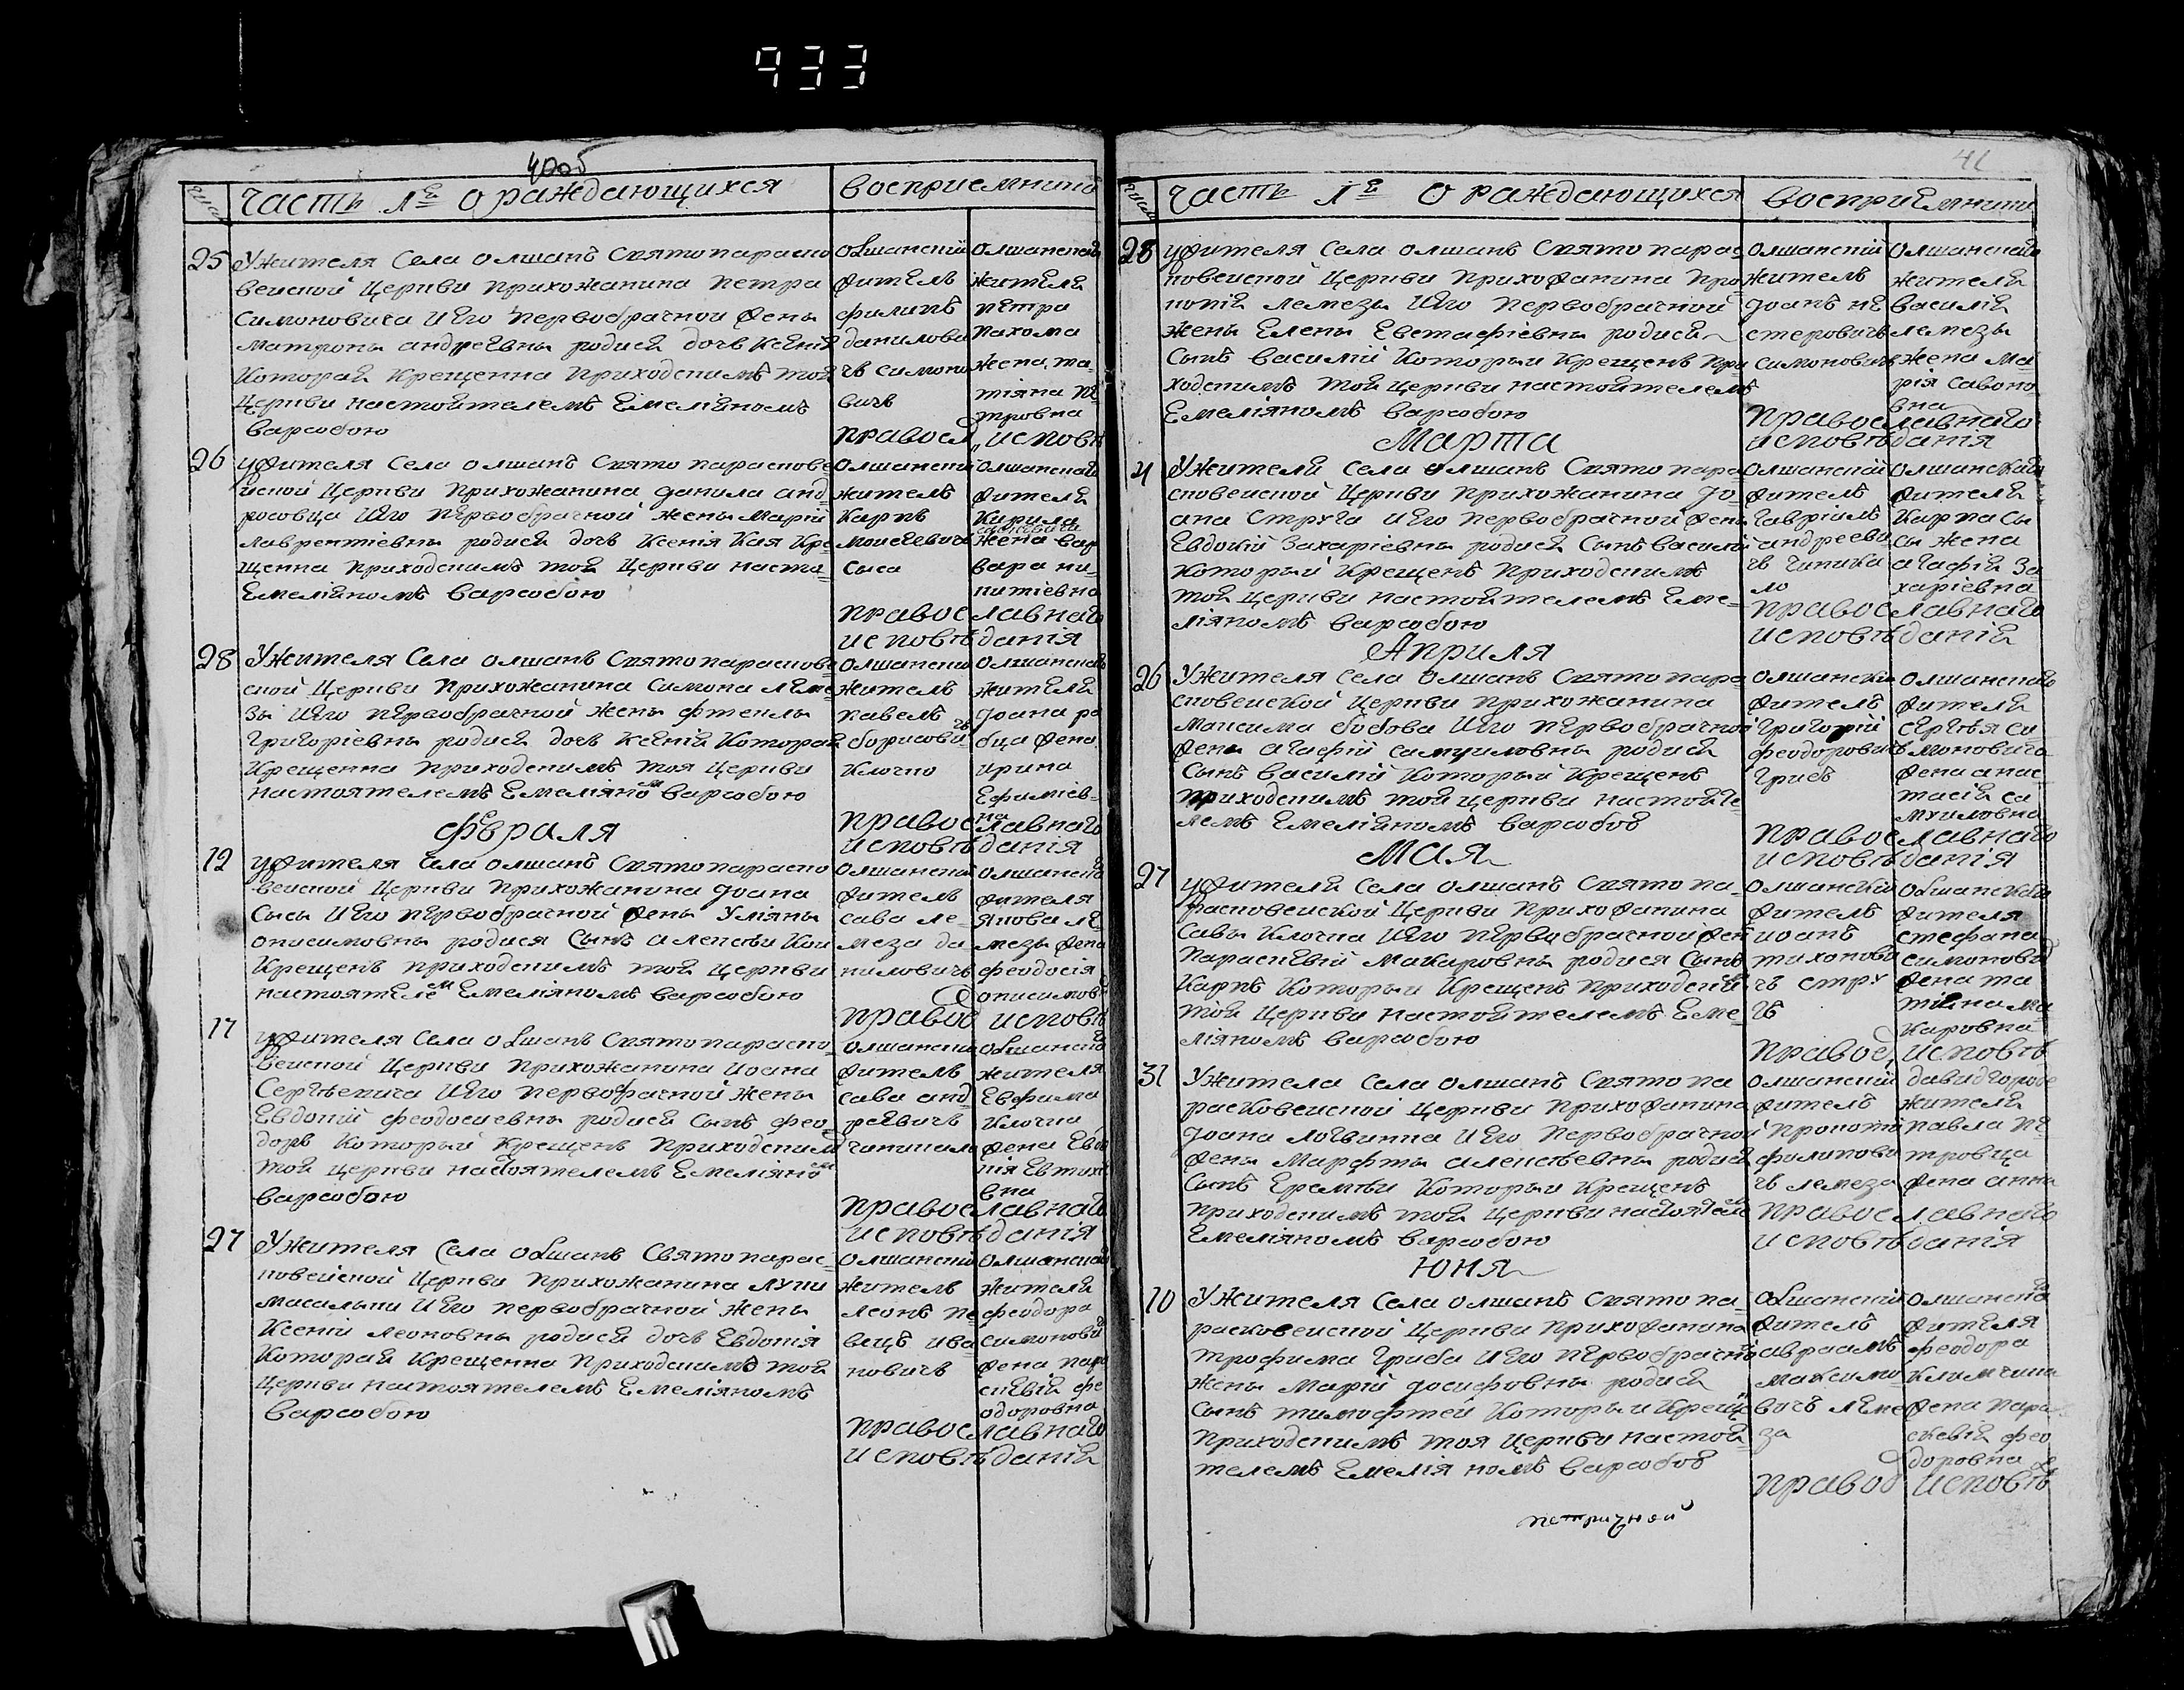 933
40об
Часть 1е о раждающихся
Восприемники
25
У жителя Села Олшанъ Святопараско
веиской Церкви Прихожанина Петра
Симоновича И Его Первобрачной жены
Матроны Андреевны родися дочь Ксенія
Которая Крещенна Приходскимъ той
Церкви настоятелемъ Емеліяномъ
Варавою
Олшанскій
житель
Филипъ
данилови
чъ симоно
вичъ
Олшанскаго
жителя
Петра
Пахома
жена та
тіяна Пе
тровна
Правосл исповѣ
26
У жителя Села Олшанъ Святопараскове
иской Церкви Прихожанина данила анд
росовца И Его Первобрачной жены Маріи
Лаврентіевны родися дочь Ксенія Кая Кре
щенна Приходскимъ той Церкви насто
Емеліяномъ
Олшанскій
житель
Карпъ
Моисеевичъ
Сыса
Олшанскаго
жителя
Кирила
жена Вар
вара ни
китіевна
Православнаго
исповѣданія
28
У жителя Села Олшанъ Святопараскове
ской Церкви Прихожанина Симона Леме
зы И Его Первобрачной жены Фтеклы
Григоріевны родися дочь Ксенія Которая
Крещенна Приходскимъ тоя Церкви
настоятелемъ Емеляном
Олшанскій
житель
Павелъ
борисовичъ
Клочко
Олшанскаго
жителя
Іоана ра
бца жена
Ирина
Ефиміев
на
Православнаго
исповѣданія
Февраля
12
У жителя Села Олшанъ Святопараско
веиской Церкви Прихожанина Іоана
Сысы И Его Первобрачной жены Уліяны
Онисимовны родися Сынъ Алексѣи Кои
Крещенъ Приходскимъ той Церкви
настоятелем Емеліяномъ
Олшанскій
житель
Сава ле
меза да
ниловичъ
Олшанскаго
жителя
Якова ле
мезы жена
феодосія
онисимов
Правос исповѣ
17
У жителя Села Олшанъ Святопараско
веиской Церкви Прихожанина Иоана
Сергѣевича И Его Первобрачной жены
Евдокіи феодосиевны родися Сынъ фео
доръ Который Крещенъ Приходским
той Церкви настоятелемъ Емеліяном
Олшанскій
житель
Сава анд
реевичъ
Олшанскаго
жителя
Евфима
Клочка
жена Евдо
кія Евтихі
вна
Православнаго
исповѣданія
27
У жителя Села Олшанъ Святопарас
ковейской Церкви Прихожанина Луки
И Его Первобрачной жены
Ксеніи Леоновны родися дочь Евдокія
Которая Крещенна Приходскимъ той
Церкви настоятелемъ Емеліяномъ
Олшанскій
житель
Леонъ пе
вецъ ива
новичъ
Олшанскаго
жителя
феодора
симонови
жена пара
скевія фе
одоровна
Православнаго
исповѣданія
41
Часть 1е о раждающихся
Восприемники
28
У жителя Села Олшанъ Святопарас
ковеиской Церкви Прихожанина Про
копія Лемезы И Его Первобрачной
жены Елены Евстафіевны родися
Сынъ Василій Которыи Крещенъ При
ходскимъ той Церкви настоятелемъ
Емеліяномъ
Олшанскій
житель
Іоанъ не
стеровичъ
симоновичъ
Олшанскаго
жителя
Василія
лемезы
жена Ма
рія савоно
вна
Православнаго
исповѣданія
Марта
4
У жителя Села Олшанъ Святопара
сковеиской Церкви Прихожанина Іо
ана Струга И Его Первобрачной жены
Евдокіи Захаріевны родися Сынъ Василій
Который Крещенъ Приходскимъ
той Церкви настоятелемъ Еме
ліяномъ
Олшанскій
житель
Гавріилъ
андрееви
чъ
Олшанскаго
жителя
Карпа Сы
сы жена
агафія За
харіевна
Православнаго
исповѣданія
Априля
26
У жителя Села Олшанъ Святопара
сковеиской Церкви Прихожанина
Максима бобова И Его Первобрачной
жены агафіи самуиловны родися
Сынъ Василій Который Крещенъ
Приходскимъ той церкви настояте
лемъ Емеліяномъ
Олшански
житель
Григорій
феодоровичъ
грибъ
Олшанскаго
жителя
сергѣя си
моновича
жена анас
тасія са
муиловна
Православнаго
исповѣданія
Мая
27
У жителя Села Олшанъ Святопа
расковеиской Церкви Прихожанина
Савы Клочка И Его Первобрачной жен
Параскевіи Макаровны родися Сынъ
Карпъ Которыи Крещенъ Приходски
той Церкви настоятелемъ Еме
ліяномъ
Олшански
житель
иоанъ
тихонови
чъ стру
гъ
Олшанскаго
жителя
стефана
симонови
жена та
тіяна ма
каровна
Правос исповѣ
31
У жителя Села Олшанъ Святопа
расковеиской Церкви Прихожанина
Іоана Логвинна И Его Первобрачной
жены Марфты алексѣевны родися
Сынъ Еремѣи Которыи Крещенъ
Приходскимъ той Церкви настоятелем
Емеляномъ
Олшанскій
житель
Прокопій
филипови
чъ лемеза
давидгороде
жителя
Павла Пе
тровца
жена анна
Православнаго
исповѣданія
Июня
10
У жителя Села Олшанъ Святопа
расковеиской Церкви Прихожанина
Трофима Гриба И Его Первобрачно
жены Маріи Іосифовны родися
Сынъ Тимофтей Которыи Креще
Приходскимъ тоя Церкви настоя
телемъ Емеліяномъ
Олшанскій
житель
авраамъ
максимо
вичъ леме
за
Олшанска
жителя
феодора
Климчика
жена Пара
скевія фео
доровна
Правос исповѣ